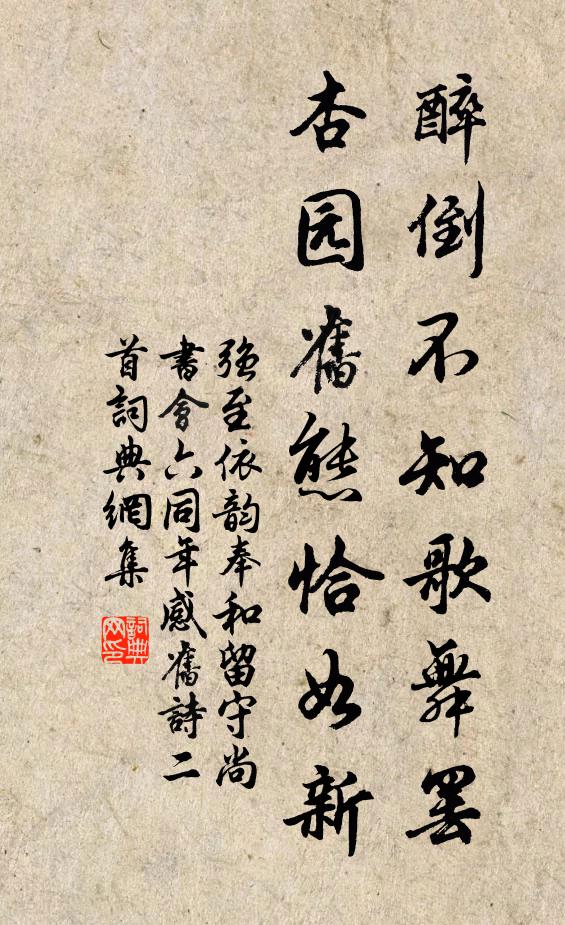 醉倒不知歌舞罢
杏园旧態恰如新
强至依韵奉和留守尚
書會六同年感舊詩二
首詞典網集
詞典
网印